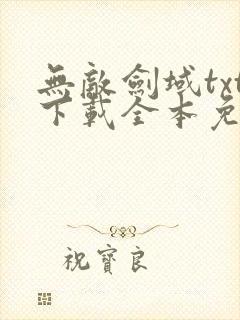 無敵劍域txt
下載全本免
祝寶良